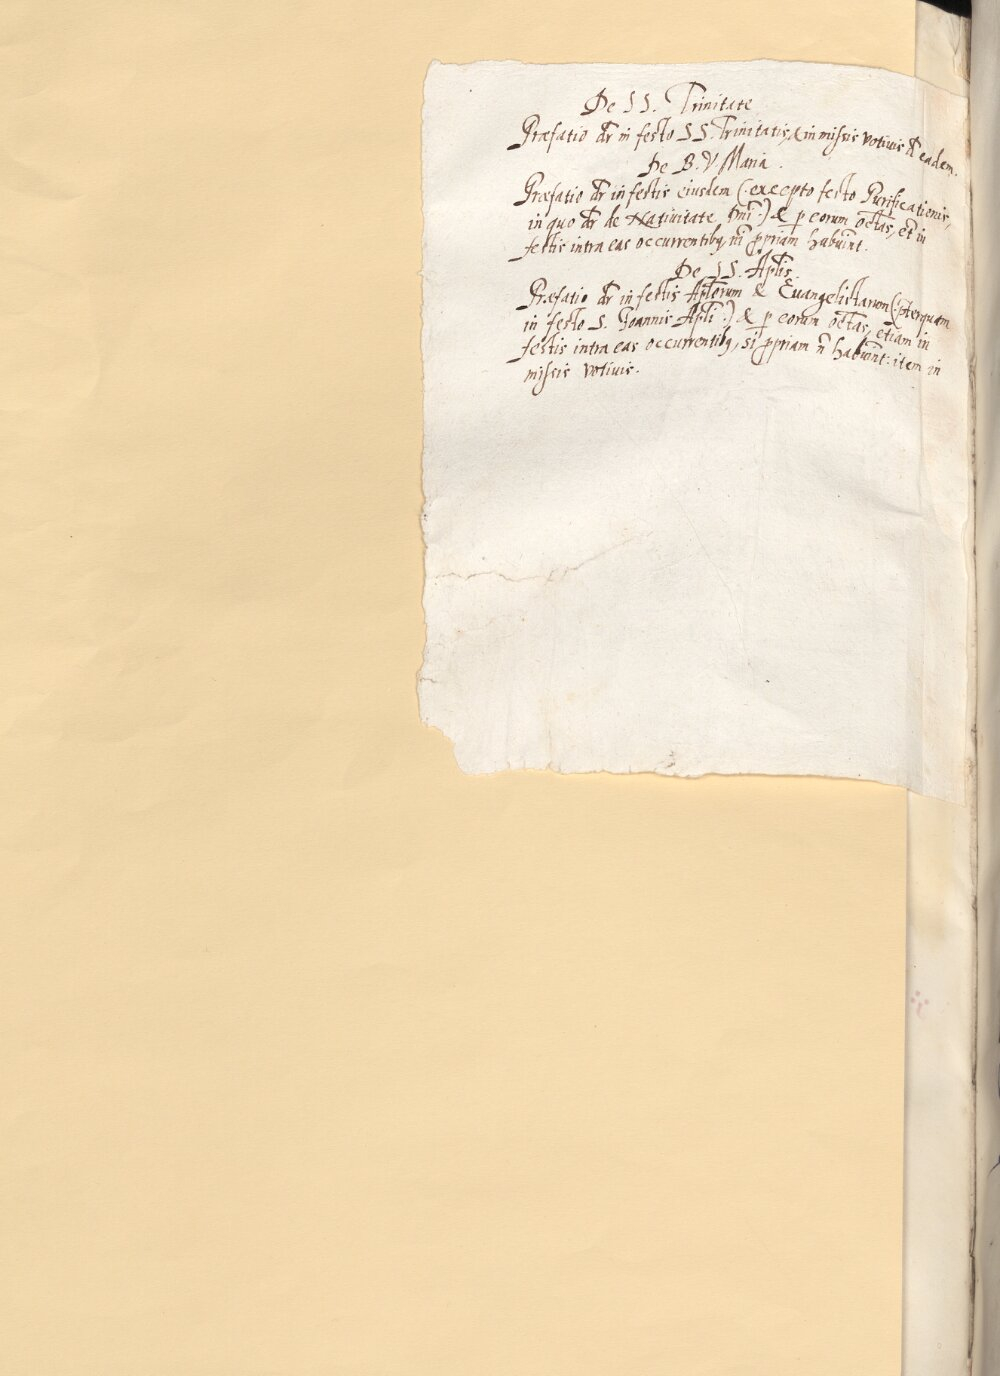 De SS. Trinitate
Præfatio dr̄ in festo SS. Trinitatis, & in missis votivis d̄ eadem.
De B. V Maria.
Præfatio dr̄ in festis eiusdem (: excepto festo Purificationis,
in quo dr̄ de Nativitate Dn̄i :) & p eorum octãs, et in
festis intra eas occurrentibq, ni p̱priam habūint.
De SS. Apłis.
Præfatio dr̄ in festis Apłorum & Evangelistarum (: p̱terquam
in festo S. Joannis Apłi :) & p eorum octãs, etiam in
festis intra eas occurrentibq, si p̱priam n̄ habūint: item in
missis votivis.